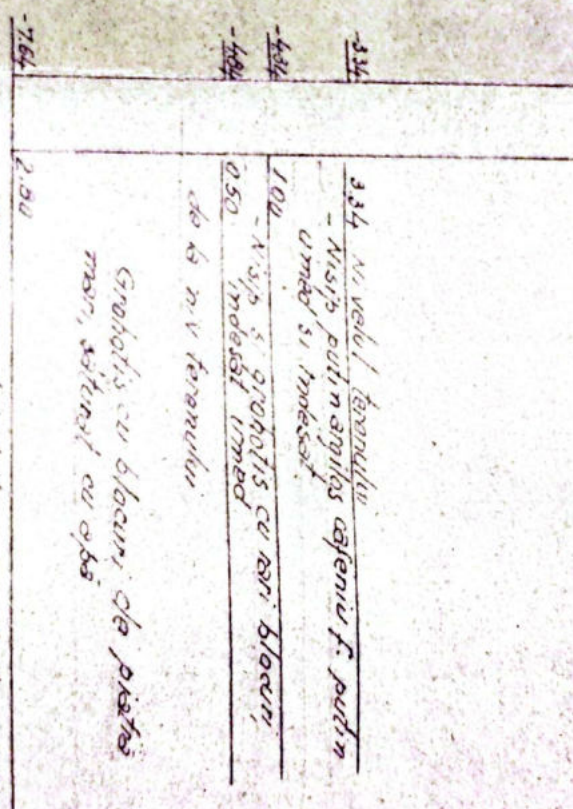 -3.34 3.34 Nivelul terenului
- Nisip putin argilos cafeniu f. putin
umed si indesat
-4.34 1.00
- Nisip si grohotis cu rari blocuri,
indesat umed
-4.84 0.50
de la niv terenului
Grohotis cu blocuri de piatra
mari, saturat cu apa
-7.64 2.80